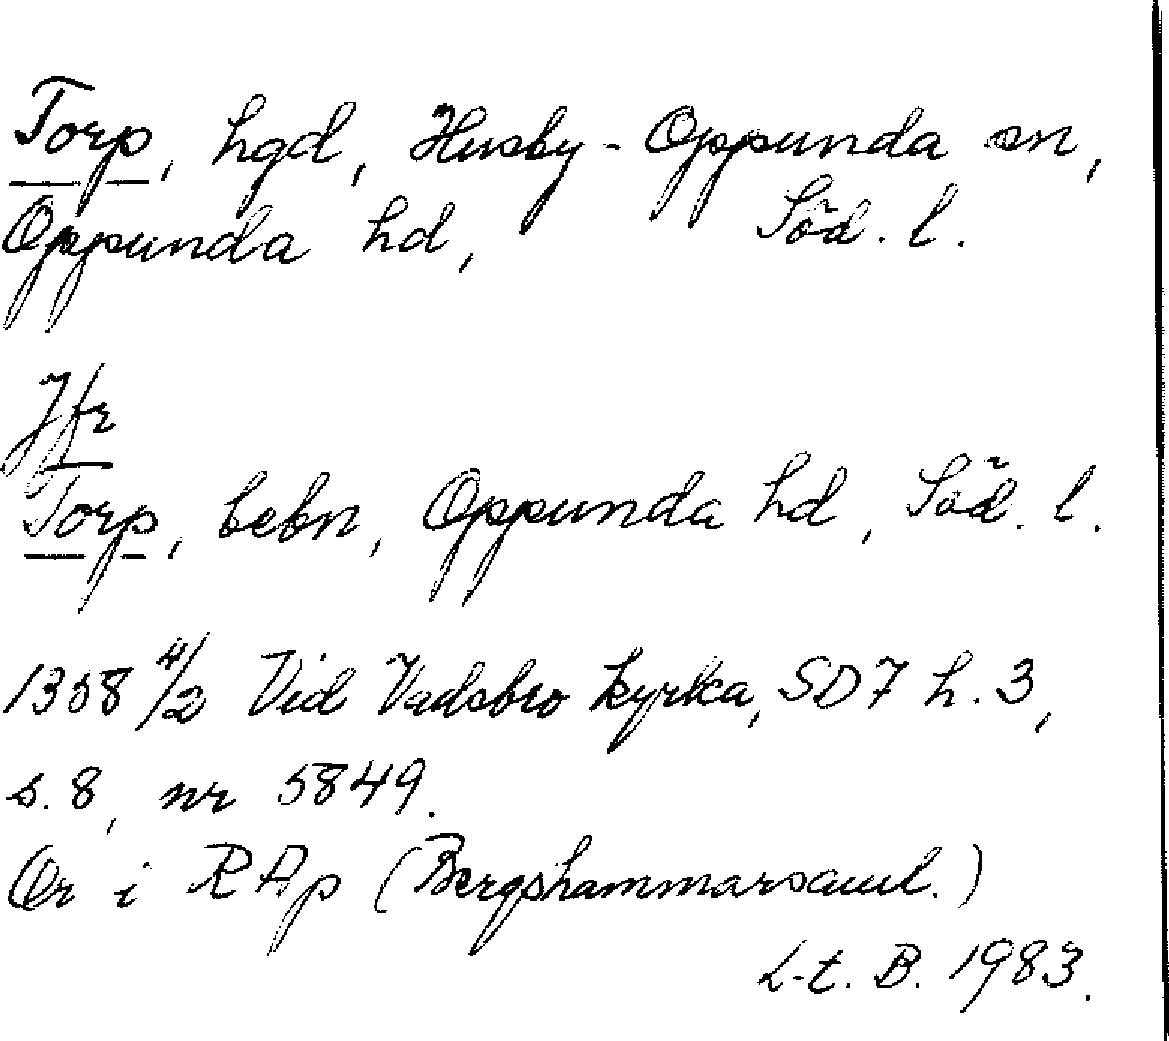 Torp, hgd, Husby-Oppunda sn,
Oppunda hd, Söd. l.
Jfr
Torp, bebn, Oppunda hd, Söd. l.
1358 4/2 Vid Vadsbro kyrka, SD7 h. 3,
s. 8, nr 5849.
Or i RAp (Bergshammarsaml.)
L-t. B. 1983.